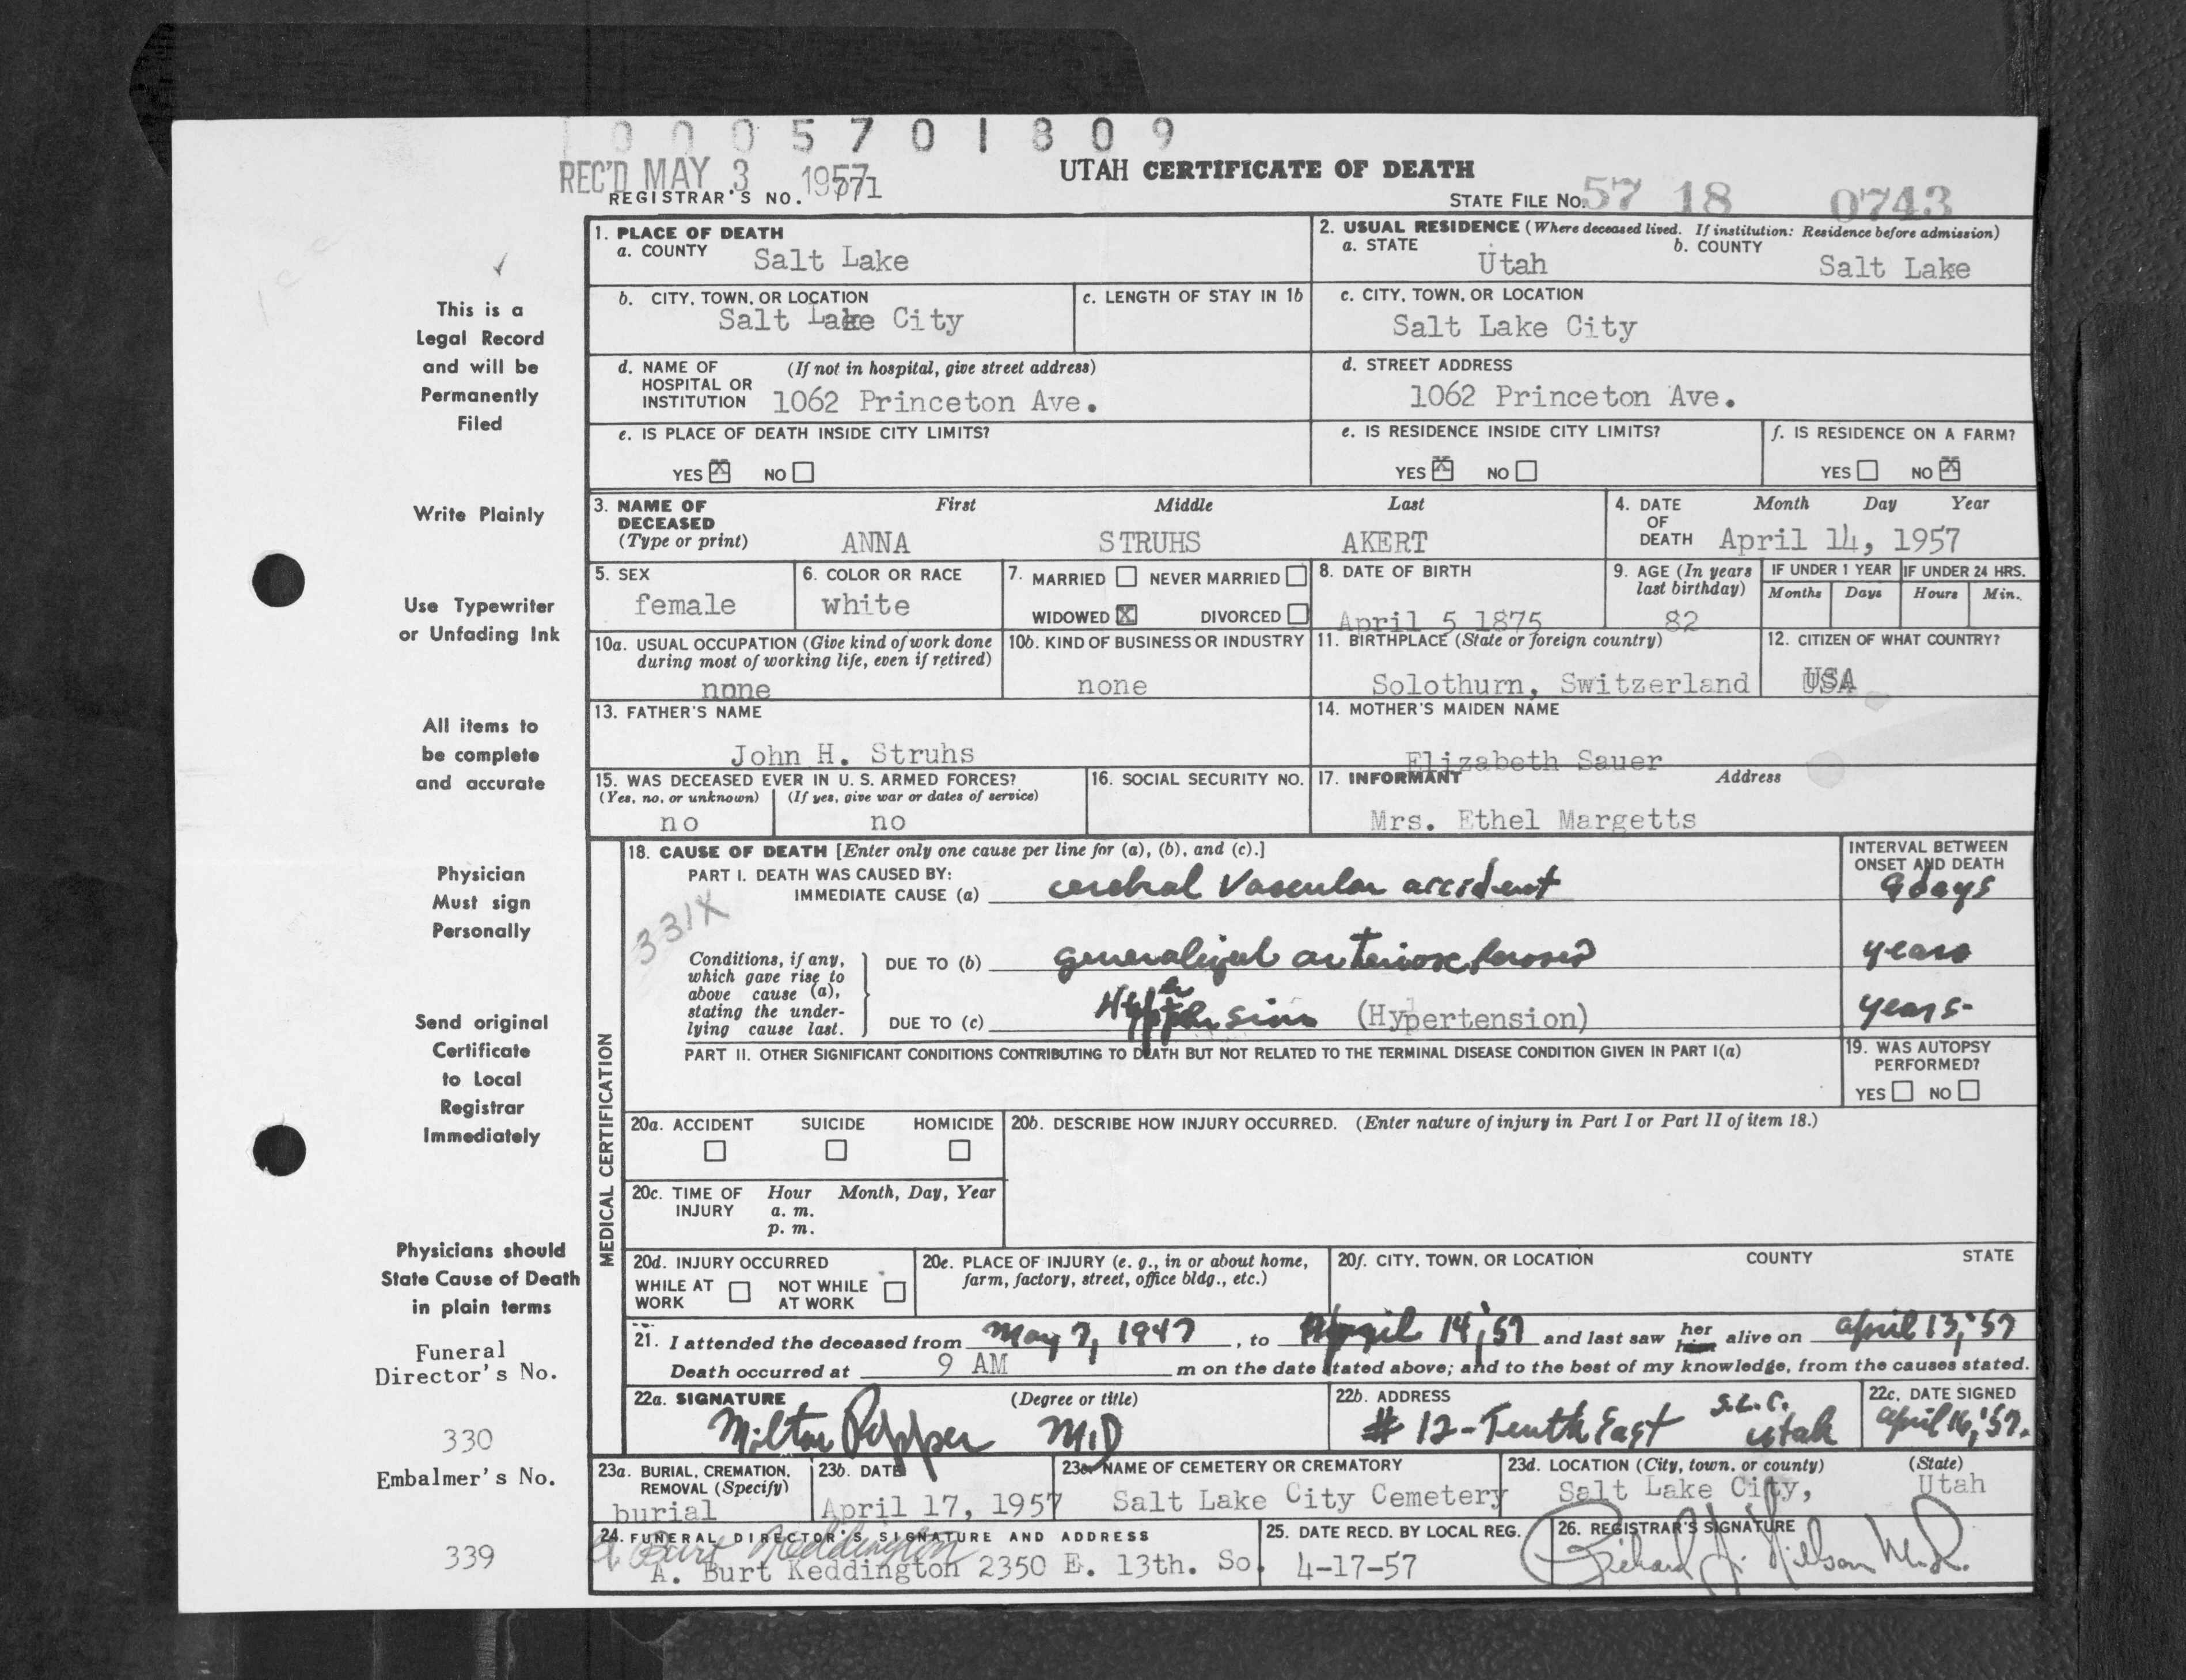 0 0 0 5 7 0 1 8 0 9
REC'D MAY 3 1957
UTAH CERTIFICATE OF DEATH
REGISTRAR'S NO.
STATE FILE NO. 57 18 0743
1. PLACE OF DEATH
a. COUNTY Salt Lake
2. USUAL RESIDENCE (Where deceased lived. If institution: Residence before admission)
a. STATE Utah b. COUNTY Salt Lake
b. CITY, TOWN, OR LOCATION
Salt Lake City
c. LENGTH OF STAY IN 1b
c. CITY, TOWN, OR LOCATION
Salt Lake City
d. NAME OF (If not in hospital, give street address)
HOSPITAL OR
INSTITUTION 1062 Princeton Ave.
d. STREET ADDRESS
1062 Princeton Ave.
e. IS PLACE OF DEATH INSIDE CITY LIMITS?
YES X NO
e. IS RESIDENCE INSIDE CITY LIMITS?
YES X NO
f. IS RESIDENCE ON A FARM?
YES NO X
3. NAME OF First Middle Last
DECEASED
(Type or print) ANNA STRUHS AKERT
4. DATE Month Day Year
OF
DEATH April 14, 1957
5. SEX
female
6. COLOR OR RACE
white
7. MARRIED NEVER MARRIED
WIDOWED X DIVORCED
8. DATE OF BIRTH
April 5 1875
9. AGE (In years
last birthday)
82
IF UNDER 1 YEAR
Months Days
IF UNDER 24 HRS.
Hours Min.
10a. USUAL OCCUPATION (Give kind of work done
during most of working life, even if retired)
none
10b. KIND OF BUSINESS OR INDUSTRY
none
11. BIRTHPLACE (State or foreign country)
Solothurn, Switzerland
12. CITIZEN OF WHAT COUNTRY?
USA
13. FATHER'S NAME
John H. Struhs
14. MOTHER'S MAIDEN NAME
Elizabeth Sauer
15. WAS DECEASED EVER IN U. S. ARMED FORCES?
(Yes, no, or unknown) (If yes, give war or dates of service)
no no
16. SOCIAL SECURITY NO.
17. INFORMANT Address
Mrs. Ethel Margetts
MEDICAL CERTIFICATION
18. CAUSE OF DEATH [Enter only one cause per line for (a), (b), and (c).]
PART I. DEATH WAS CAUSED BY:
IMMEDIATE CAUSE (a) cerebral Vascular accident
INTERVAL BETWEEN
ONSET AND DEATH
9 days
331X
Conditions, if any,
which gave rise to
above cause (a),
stating the under-
lying cause last.
DUE TO (b) generalized arteriosclerosis years
DUE TO (c) Hypertension (Hypertension) years-
PART II. OTHER SIGNIFICANT CONDITIONS CONTRIBUTING TO DEATH BUT NOT RELATED TO THE TERMINAL DISEASE CONDITION GIVEN IN PART I(a)
19. WAS AUTOPSY
PERFORMED?
YES NO
20a. ACCIDENT SUICIDE HOMICIDE
20b. DESCRIBE HOW INJURY OCCURRED. (Enter nature of injury in Part I or Part II of item 18.)
20c. TIME OF Hour Month, Day, Year
INJURY a. m.
p. m.
20d. INJURY OCCURRED
WHILE AT NOT WHILE
WORK AT WORK
20e. PLACE OF INJURY (e. g., in or about home,
farm, factory, street, office bldg., etc.)
20f. CITY, TOWN, OR LOCATION COUNTY STATE
21. I attended the deceased from May 7, 1947, to April 14, '57 and last saw her him alive on April 13, '57
Death occurred at 9 AM m on the date stated above; and to the best of my knowledge, from the causes stated.
22a. SIGNATURE (Degree or title)
Milton Pepper M.D
22b. ADDRESS
# 12 - Tenth East S.L.C. Utah
22c. DATE SIGNED
April 16, '57.
23a. BURIAL, CREMATION,
REMOVAL (Specify)
burial
23b. DATE
April 17, 1957
23c. NAME OF CEMETERY OR CREMATORY
Salt Lake City Cemetery
23d. LOCATION (City, town, or county) (State)
Salt Lake City, Utah
24. FUNERAL DIRECTOR'S SIGNATURE AND ADDRESS
A Burt Keddington
A. Burt Keddington 2350 E. 13th. So.
25. DATE RECD. BY LOCAL REG.
4-17-57
26. REGISTRAR'S SIGNATURE
Richard H. Nilson M.D.
This is a
Legal Record
and will be
Permanently
Filed
Write Plainly
Use Typewriter
or Unfading Ink
All items to
be complete
and accurate
Physician
Must sign
Personally
Send original
Certificate
to Local
Registrar
Immediately
Physicians should
State Cause of Death
in plain terms
Funeral
Director's No.
330
Embalmer's No.
339